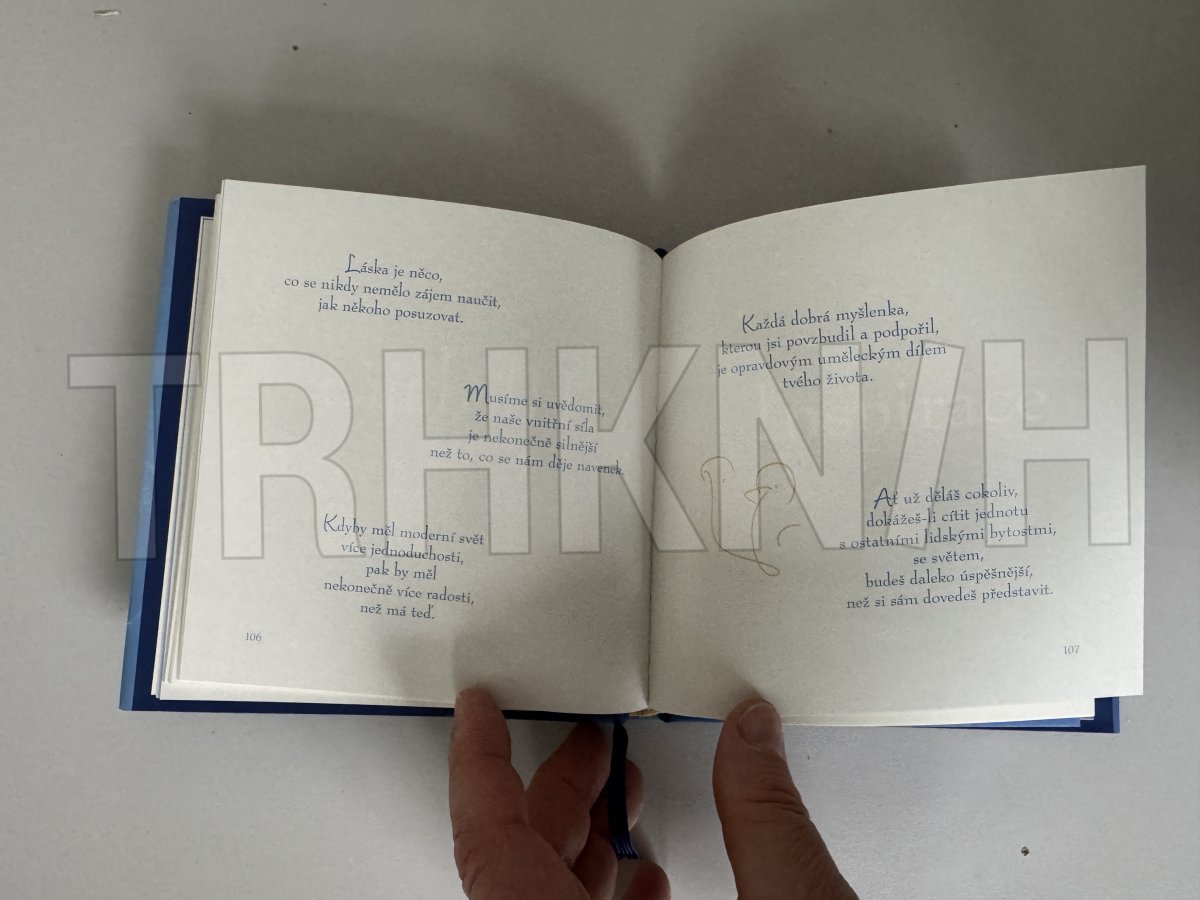 Láska je něco,
co se nikdy nemělo zájem naučit,
jak někoho posuzovat.
Musíme si uvědomit,
že naše vnitřní síla
je nekonečně silnější
než to, co se nám děje navenek.
Kdyby měl moderní svět
více jednoduchosti,
pak by měl
nekonečně více radosti,
než má teď.
106
Každá dobrá myšlenka,
kterou jsi povzbudil a podpořil,
je opravdovým uměleckým dílem
tvého života.
Ať už děláš cokoliv,
dokážeš-li cítit jednotu
s ostatními lidskými bytostmi,
se světem,
budeš daleko úspěšnější,
než si sám dovedeš představit.
107
TRHKNIH